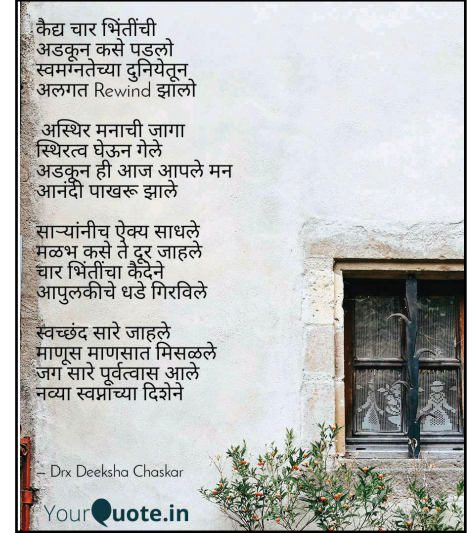 कैद्य चार भिंतींची
अडकून कसे पडलो
स्वमग्नतेच्या दुनियेतून
अलगत Rewind झालो
अस्थिर मनाची जागा
स्थिरत्व घेऊन गेले
अडकून ही आज आपले मन
आनंदी पाखरू झाले
साऱ्यांनीच ऐक्य साधले
मळभ कसे ते दूर जाहले
चार भिंतींचा कैदेने
आपुलकीचे धडे गिरविले
स्वच्छंद सारे जाहले
माणूस माणसात मिसळले
जग सारे पूर्वत्वास आले
नव्या स्वप्नांच्या दिशेने
– Drx Deeksha Chaskar
YourQuote.in